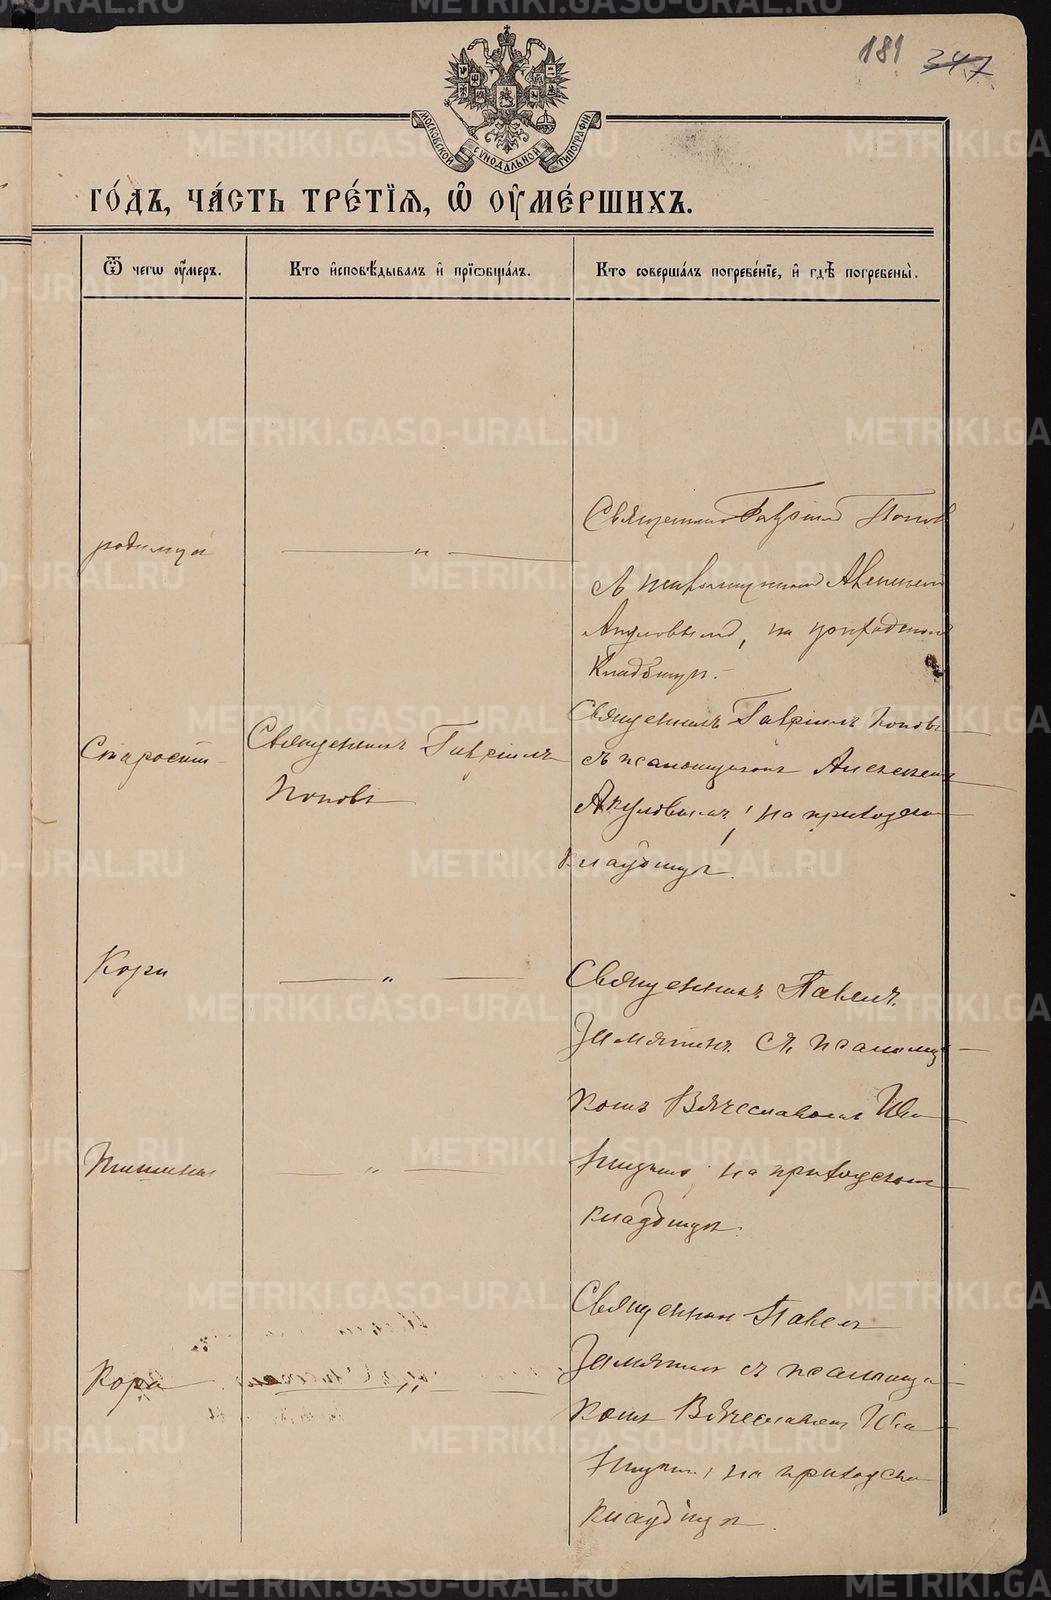 181 347
МОСКОВСКОЙ СѴНОДАЛЬНОЙ ТИПОГРАФІИ
ГО́ДЪ, ЧА́СТЬ ТРЕ́ТІѦ, Ѽ ОУ҆МЕ́РШИХЪ.
Ѿ чегѡ оу҆́меръ.
Кто и҆сповѣ́дывалъ и҆ прїѡбща́лъ.
Кто соверша́лъ погребе́нїе, и҆ гдѣ̀ погребены̀.
родимца
— „ —
Священникъ Гавріилъ Попов
съ псаломщикомъ Алексеем
Акуловымъ, на приходском
кладбищѣ.
Старости
Священникъ Гавріилъ
Поповъ
Священникъ Гавріилъ Поповъ
съ псаломщикомъ Алексеемъ
Акуловымъ, на приходском
кладбищѣ.
Кори
— „ —
Священникъ Павелъ
Замятинъ съ псаломщи-
комъ Вячеславомъ
на приходском
кладбищѣ.
— „ —
Кори
— „ —
Священник Павелъ
Замятин съ псаломщи-
комъ Вячеславом
на приходском
кладбищѣ.
METRIKI.GASO-URAL.RU